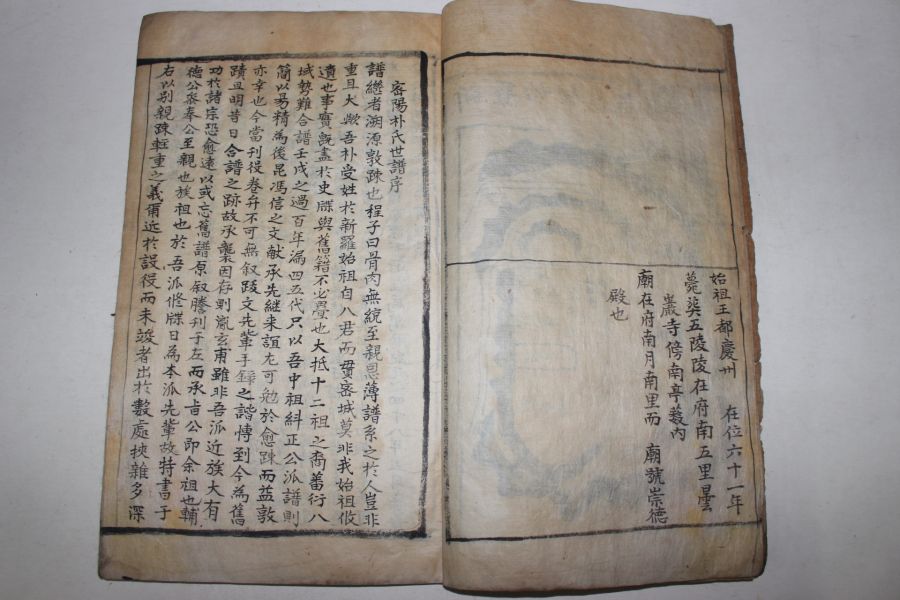 始祖王都慶州　在位六十一年
薨葬五陵陵在府南五里曇
巖寺傍南亭藪内
廟在府南月南里而　廟號崇德
殿也
密陽朴氏世譜序
譜繼者溯源敦踈也程子曰骨肉無統至親恩薄譜系之於人豈非
重且大歟吾朴受姓於新羅始祖自八君而貫密城莫非我始祖攸
遺也事實旣盡於史牒與舊籍不必疊也大抵十二祖之裔蕃衍八
域勢難合譜壬戌之過百年漏四五代只以吾中祖糾正公派譜則
簡以易精為後昆馮信之文献承先継来誼尤可勉於愈踈而益敦
亦幸也今當刊役卷弁不可無叙跋文先輩手錄之諧愽到今為舊
蹟且明昔日合譜之跡故承襲因存則胤玄甫雖非吾派近族大有
功於諸宗恐愈遠以或忘舊譜原叙謄刊于左而承肯公即余祖也輔
德公癸奉公至親也族祖也於吾派修牒日為本派先輩故特書于
右以别親踈輊重之義爾近於設役而未竣者出於數處挾雜多深